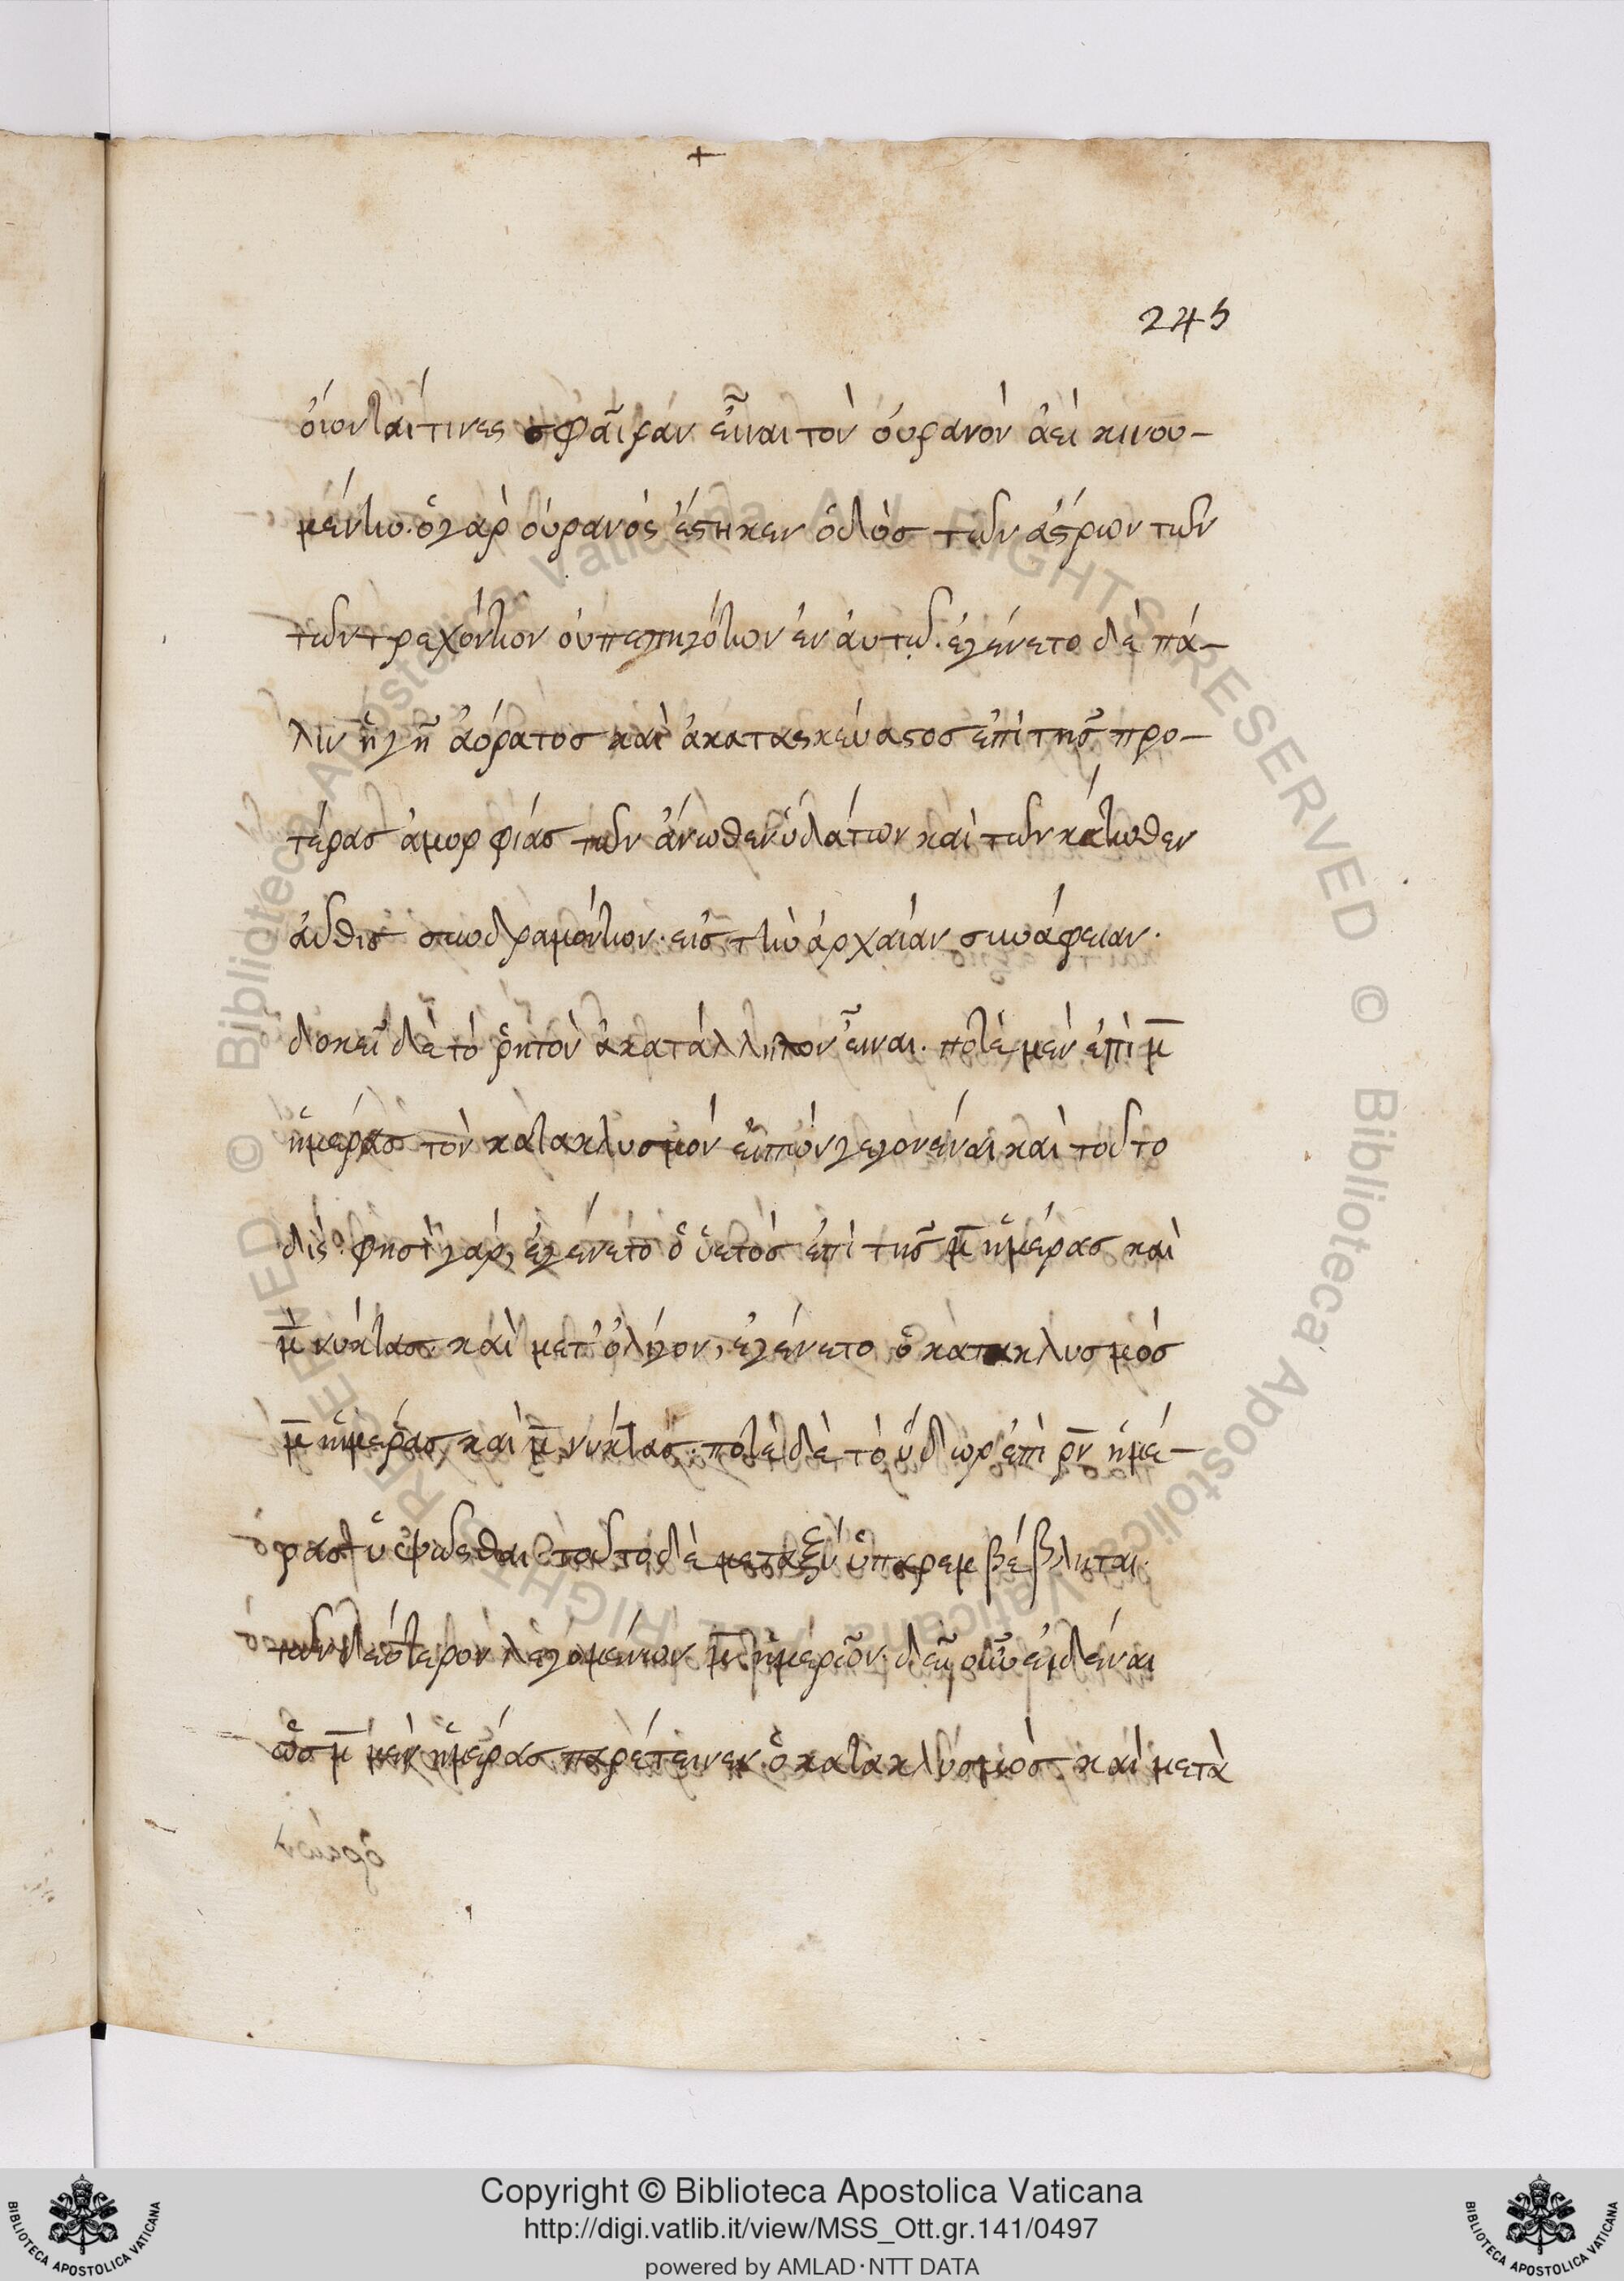 +
245
ὁίονταί τινες σφαῖραν εἶναι τὸν ὀυρανὸν ἀεὶ κινου-
μένην. ὁ γὰρ ὀυρανὸς ἕστηκεν ὁδὸσ τῶν ἄστρων τῶν
τῶν τρεχόντων ὀυ πεπηγότων ἐν ἀυτῷ. ἐγένετο δὲ πά-
λιν ἡ γῆ ἀόρατοσ καὶ ἀκατασκεύαστοσ ἐπὶ τῆσ προ-
τέρασ ἀμορφίασ τῶν ἄνωθεν ὑδάτων καὶ τῶν κάτωθεν
ἀῦθισ συνδραμόντων. εἰσ τὴν ἀρχαίαν συνάφειαν.
δοκεῖ δὲ τὸ ῥητὸν ἀκατάλληλον εἶναι. ποτὲ μὲν ἐπὶ μ̅
ἡμέρασ τὸν κατακλυσμὸν εἰπὸν γεγονέναι καὶ τοῦτο
δίς. φησὶ γάρ, ἐγένετο ὁ ὑετὸσ ἐπὶ τῆσ μ̅ ἡμέρασ καὶ
μ̅ νύκτασ. καὶ μετ' ὀλίγον, ἐγένετο ὁ κατακλυσμὸσ
μ̅ ἡμέρασ, καὶ μ̅ νύκτασ. ποτὲ δὲ τὸ ὕδωρ ἐπὶ ρν̅ ἡμέ-
ρασ ὑψῶσθαι τοῦτο δὲ μεταξὺ ὑπερεμβέβληται.
τῶν δεύτερον λεγομένων μ̅ ἡμερῶν. δεῖ οὖν ἐιδέναι
ὡσ μ̅ μὲν ἡμέρασ παρέτεινεν ὁ κατακλυσμὸσ. καὶ μετὰ
Copyright © Biblioteca Apostolica Vaticana
http://digi.vatlib.it/view/MSS_Ott.gr.141/0497
powered by AMLAD·NTT DATA
BIBLIOTECA APOSTOLICA VATICANA
BIBLIOTECA APOSTOLICA VATICANA